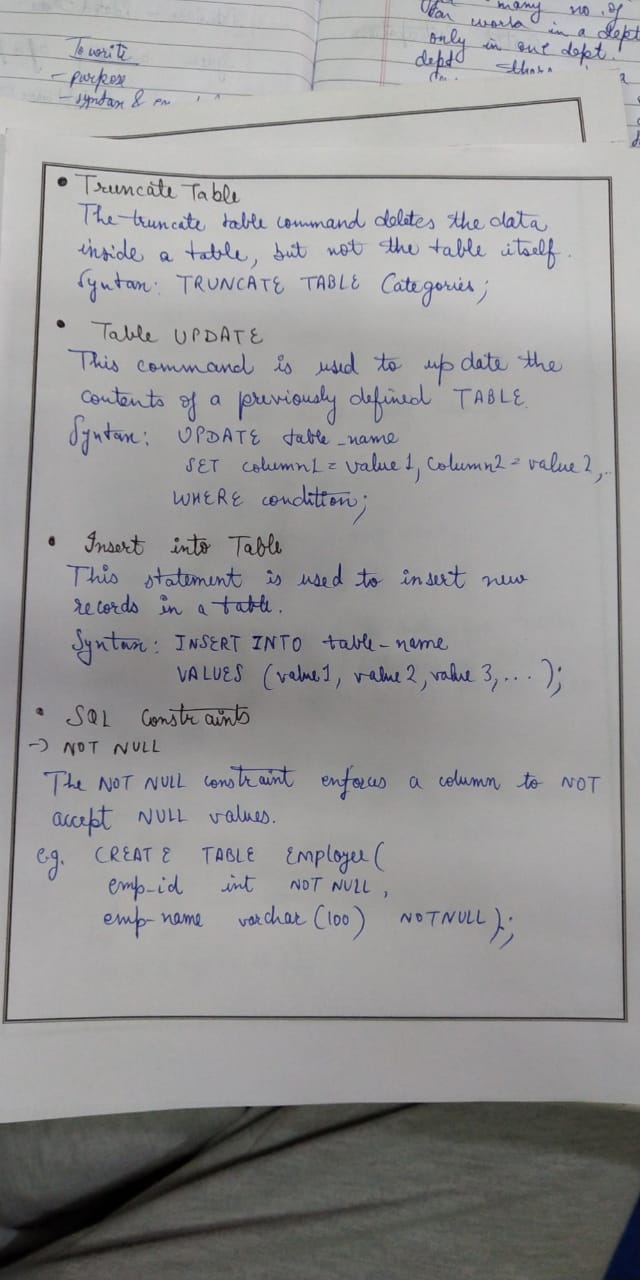 many no. of
can work in a dept
only in one dept.
dept
To write
- purpose
- syntax &
• Truncate Table
The truncate table command deletes the data
inside a table, but not the table itself.
Syntax: TRUNCATE TABLE Categories;
• Table UPDATE
This command is used to update the
contents of a previously defined TABLE.
Syntax: UPDATE table_name
SET column1 = value1, column2 = value2,..
WHERE condition;
• Insert into Table
This statement is used to insert new
records in a table.
Syntax: INSERT INTO table-name
VALUES (value1, value2, value3,...);
• SQL Constraints
→ NOT NULL
The NOT NULL constraint enforces a column to NOT
accept NULL values.
e.g. CREATE TABLE Employee(
emp-id int NOT NULL,
emp-name varchar(100) NOTNULL);